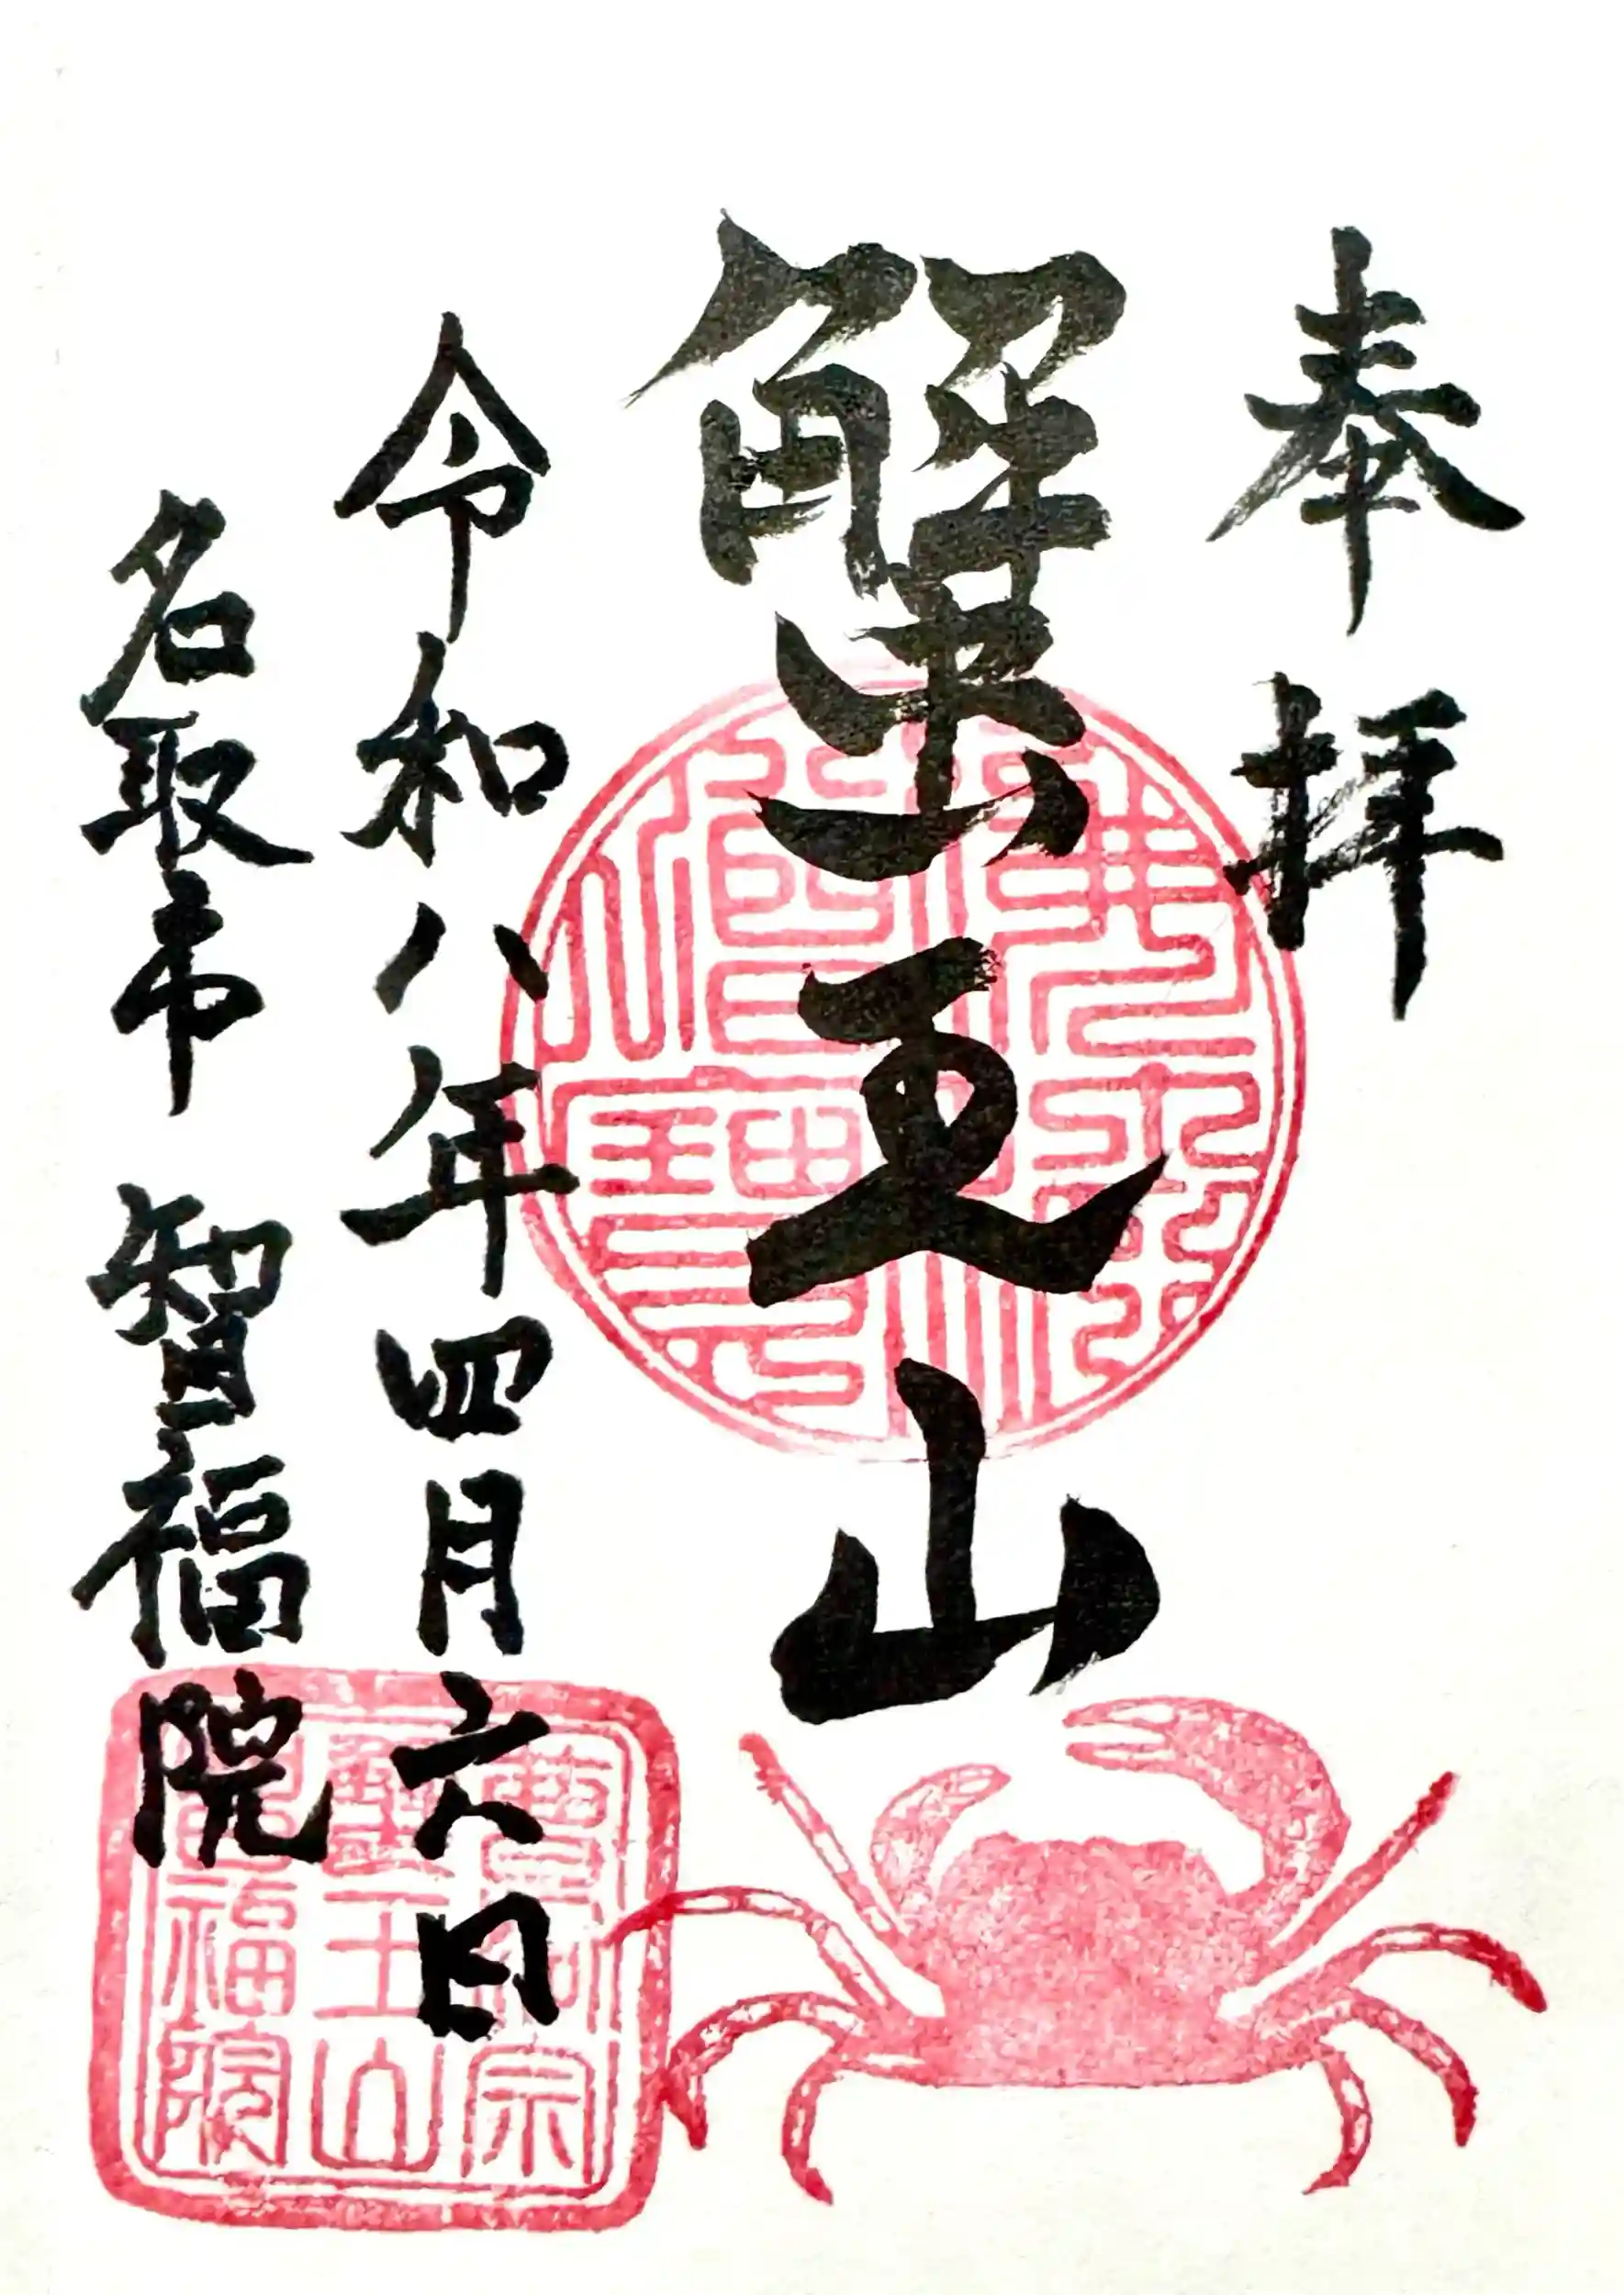 奉拝
蟹王山
令和八年四月六日
名取市 智福院
曹洞宗
蟹王山
智福院